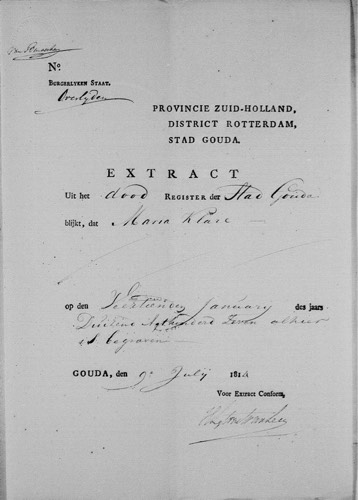 Nº.
BURGERLYKEN STAAT.
Overlyden
PROVINCIE ZUID-HOLLAND,
DISTRICT ROTTERDAM,
STAD GOUDA.
EXTRACT
Uit het dood REGISTER der Stad Gouda
blijkt, dat Maria Klare
op den January des jaars
Duizend Agthonderd Zeven alhier
is begraven
GOUDA, den 9e July 181
Voor Extract Conform,